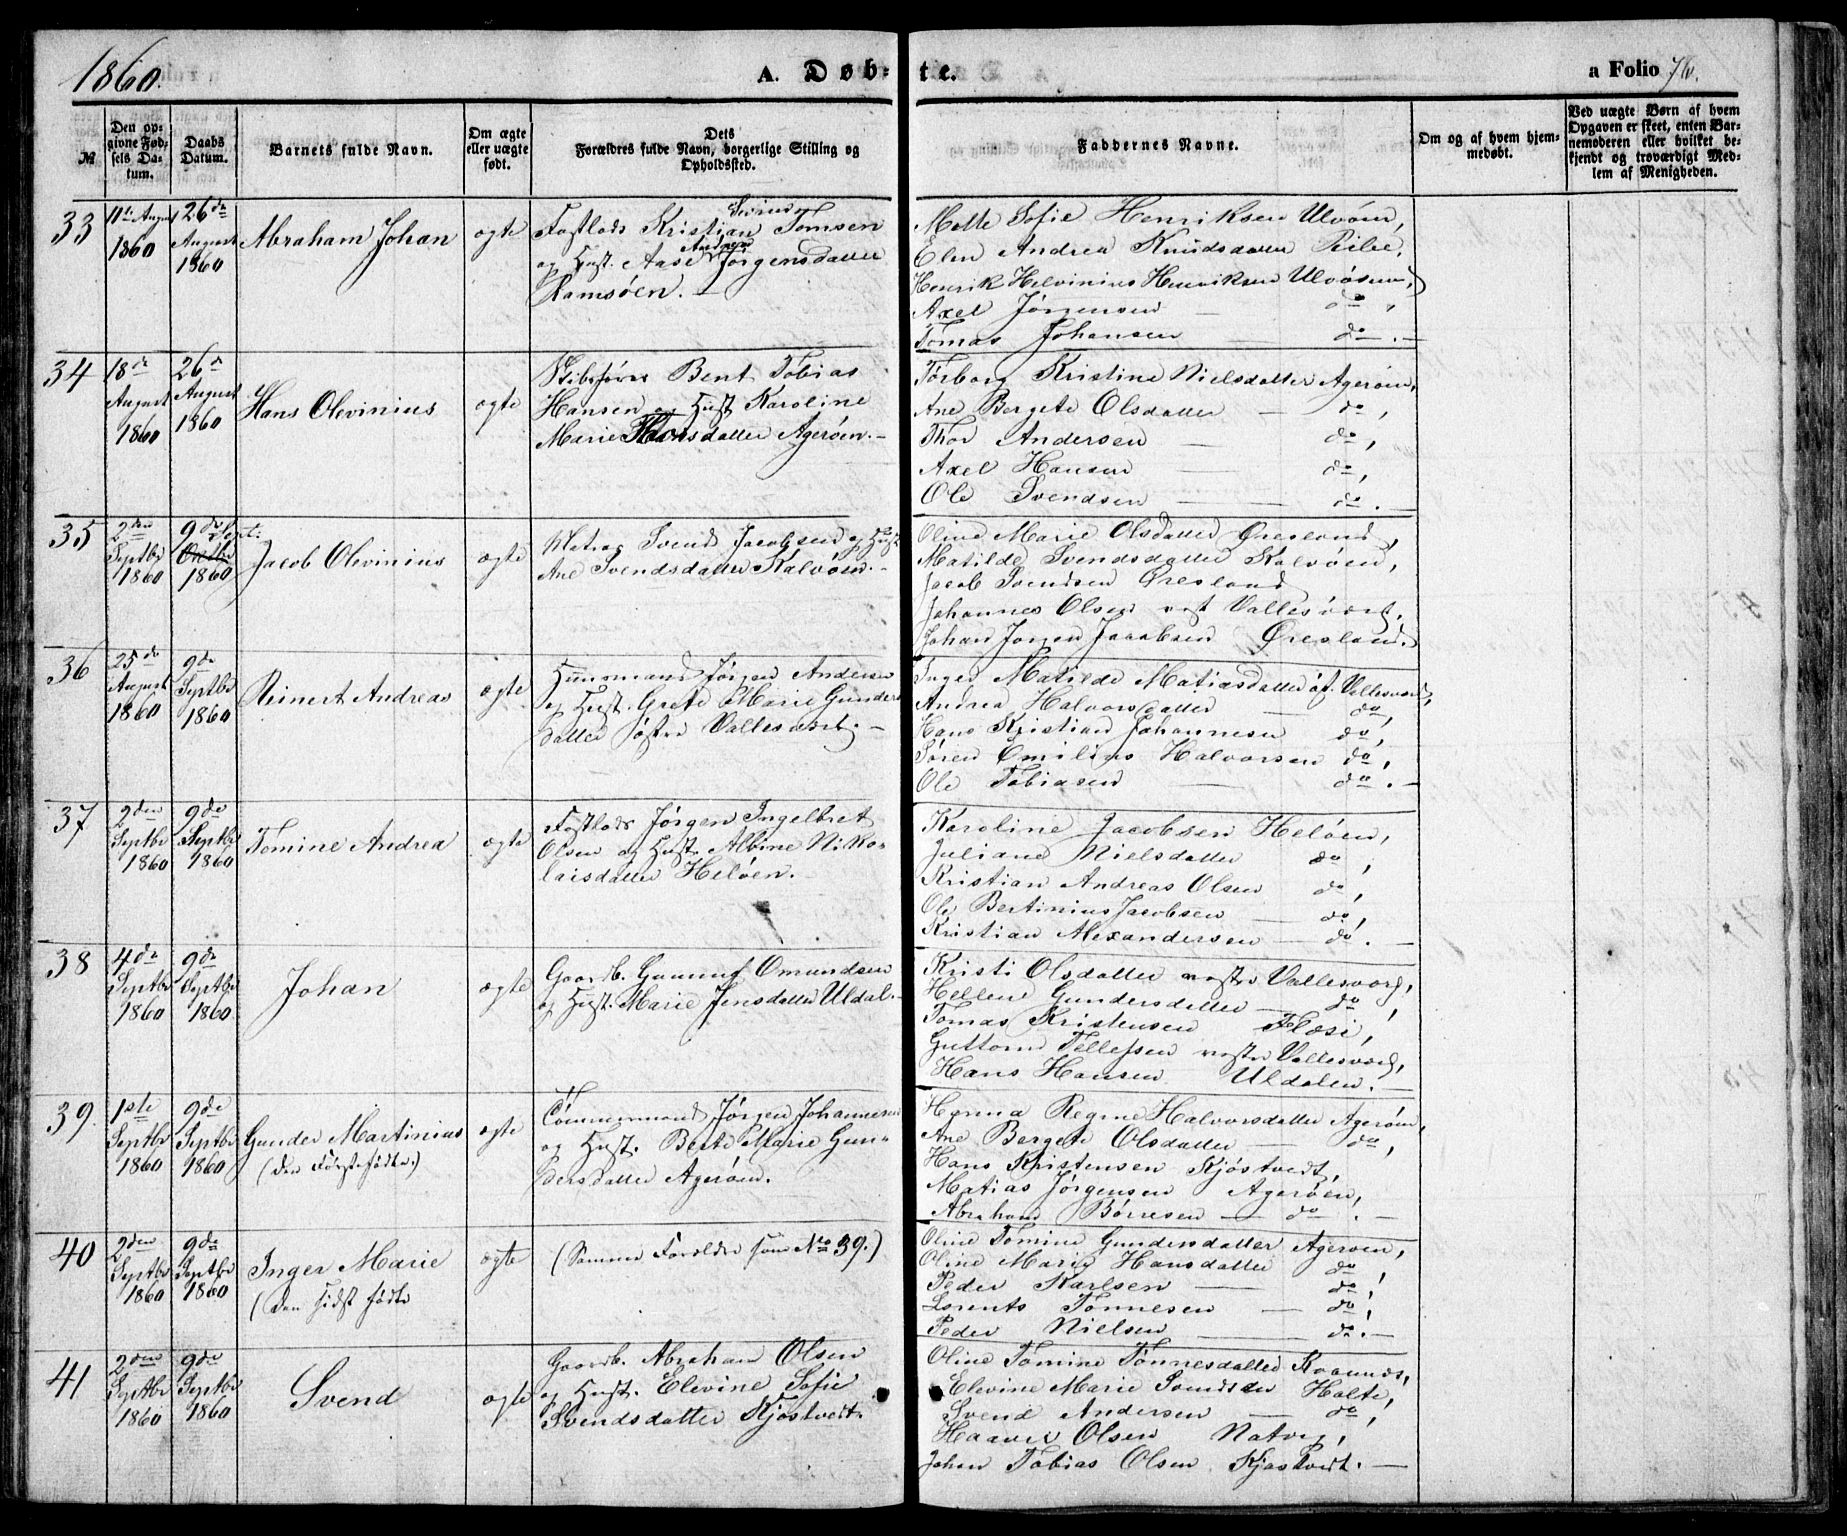 1860.
A. Døb-
te.
a Folio 76.
№
Den op-
givne Fød-
sels Da-
tum.
Daabs
Datum.
Barnets fulde Navn.
Om ægte
eller uægte
født.
Dets
Forældres fulde Navn, borgerlige Stilling og
Opholdssted.
Faddernes Navne.
Om og af hvem hjem-
medøbt.
Ved uægte Børn af hvem
Opgaven er skeet, enten Bar-
nemoderen eller hvilket be-
kjendt og troværdigt Med-
lem af Menigheden.
33
11te August
1860
26de
August
1860
Abraham Johan
ægte
Fastlods Kristian Tomsen
og Hust. Aase Andrea Jørgensdatter
Ramsøen.
Mette Sofie Henriksen Ulvøen,
Elen Andrea Knudsdatter
Henrik Helvinius Henriksen Ulvøsund,
Axel Jørgensen — do,
Tomas Johansen do. —
34
18de
August
1860
26de
August
1860
Hans Olevinius
ægte
Skibsfører Bent Tobias
Hansen og Hust Karoline
Marie Agerøen. —
Torborg Kristine Nielsdatter Agerøen,
Ane Bergete Olsdatter — do,
Thor Andersen — do,
Axel Hansen — do,
Ole Svendsen — do. —
35
2den
Septbr
1860
9de Sept:
1860
Jacob Olevinius
ægte
Matros Svend Jacobsen og Hust
Ane Svendsdatter Kalvøen. —
Oline Marie Olsdatter Øresland,
Matilde Svendsdatter Kalvøen,
Jacob Svendsen Øresland
Johannes Olsen vest Vallesværd,
Johan Jørgen Jacobsen Øresland.
36
25de
August
1860
9de
Septbr
1860
Reinert Andreas
ægte
Huusmand Jørgen Andersen
og Hust. Grete Marie Gunders
datter østre Vallesværd. —
Inger Matilde Matiasdatter øf. Vallesværd,
Andrea Halvorsdatter — do,
Hans Kristian Johannesen do,
Søren Emilius Halvorsen do,
Ole Tobiasen — do. —
37
2den
Septbr
1860
9de
Septbr
1860
Tomine Andrea
ægte
Fastlods Jørgen Ingelbret
Olsen og Hust. Albine Niko-
laisdatter Heløen. —
Karoline Jacobsen Heløen,
Juliane Nielsdatter do,
Kristian Andreas Olsen do,
Ole Bertinius Jacobsen — do,
Kristian Alexandersen — do. —
38
4de
Septbr
1860
9de
Septbr
1860
Johan
ægte
Gaardb. Gunuf Omundsen
og Hust. Marie Jensdatter Uldal. —
Kristi Olsdatter vestre Vallesværd,
Hellene Gundersdatter — do,
Tomas Kristensen Flæsi,
Guttorm Tellefsen vestre Vallesværd,
Hans Hansen Uldalen. —
39.
1ste
Septbr
1860
9de
Septbr
1860
Gunder Martinius
(den Førstefødte.)
ægte
Tømmermand Jørgen Johannesen
og Hust. Berte Marie Gun-
dersdatter Agerøen.
Hanna Regine Halvorsdatter Agerøen,
Ane Bergete Olsdatter — do,
Hans Kristensen Kjøstvedt,
Matias Jørgensen Agerøen,
Abraham Børresen — do. —
40
2den
Septbr
1860
9de
Septbr
1860
Inger Marie
(den sidst fødte
ægte
(Samme Forældre som No 39.)
Oline Tomine Gundersdatter Agerøen,
Oline Marie Hansdatter do,
Peder Karlsen — do,
Lorents Tønnesen — do,
Peder Nielsen — do. —
41
2den
Septbr
1860
9de
Septbr
1860
Svend
ægte
Gaardb. Abraham Olsen
og Hust. Elevine Sofie
Svendsdatter Kjøstvedt.
Oline Tomine Tønnesdatter
Elevine Marie Holte,
Svend Andersen — do,
Haaver Olsen Natvig,
Johan Tobias Olsen Kjøstvedt. —